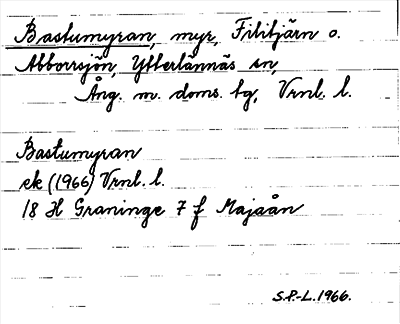 Bastumyran, myr, Filitjärn o.
Abborrsjön, Ytterlännäs sn,
Ång. m. doms. tg, Vrnl. l.
Bastumyran
ek (1966) Vrnl. l.
18 H Graninge 7 f Majaån
S.P.-L. 1966.